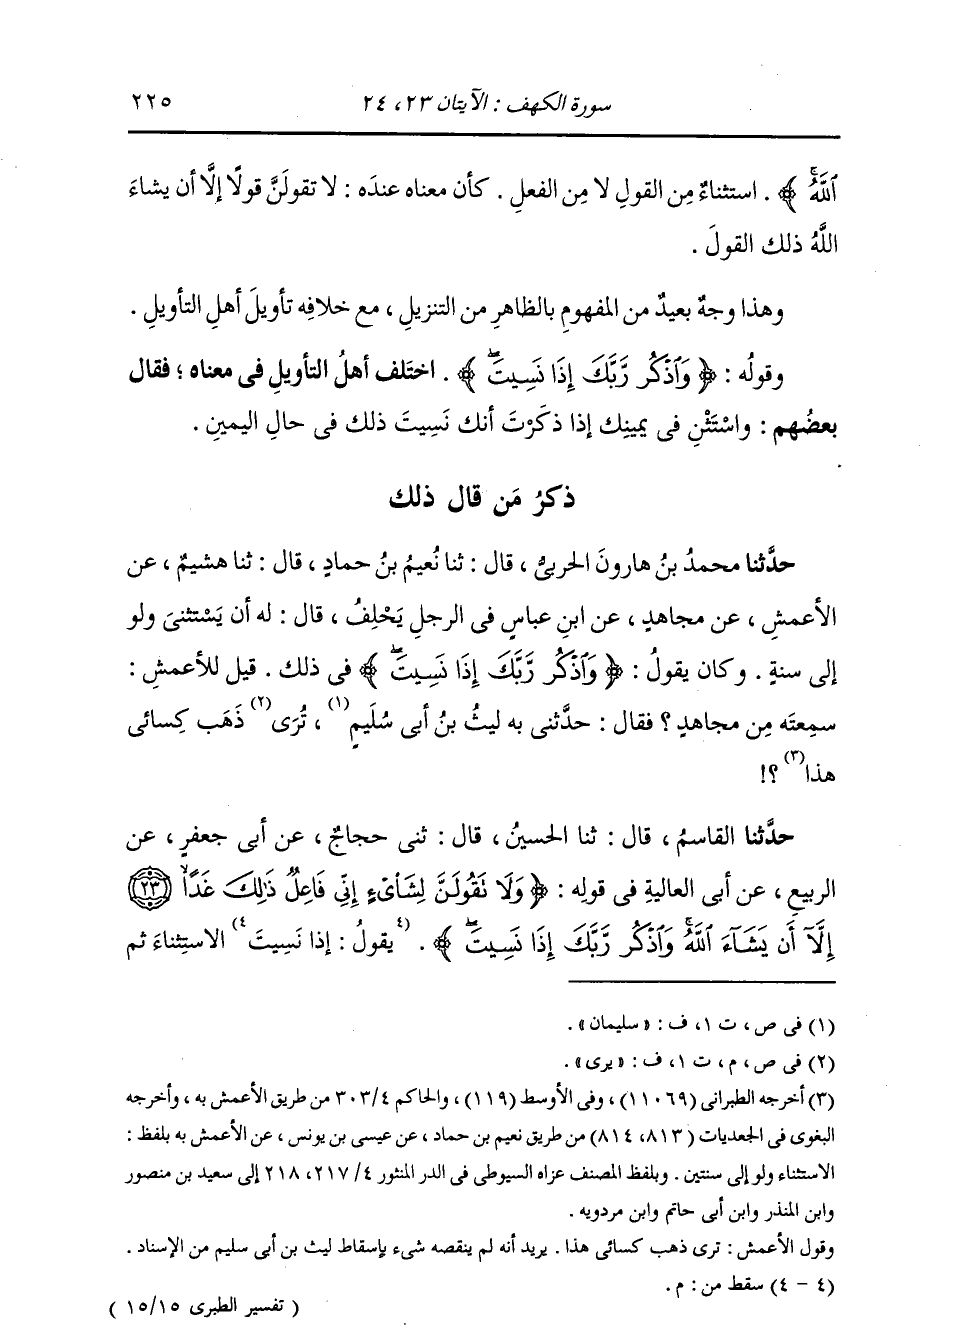 سورة الكهف : الآيتان ٢٣، ٢٤ ٢٢٥
ٱللَّهُۚ ﴾ . استثناءٌ مِن القولِ لا مِن الفعلِ . كأن معناه عندَه : لا تقولَنَّ قولًا إلَّا أن يشاءَ
اللَّهُ ذلك القولَ .
وهذا وجهٌ بعيدٌ من المفهومِ بالظاهرِ من التنزيلِ ، مع خلافِه تأويلَ أهلِ التأويلِ .
وقولُه : ﴿ وَٱذْكُر رَّبَّكَ إِذَا نَسِيتَۖ ﴾ . اختلف أهلُ التأويلِ فى معناه ؛ فقال
بعضُهم : واسْتَثْنِ فى يمينِك إذا ذكَرْتَ أنك نَسِيتَ ذلك فى حالِ اليمينِ .
ذكرُ مَن قال ذلك
حدَّثنا محمدُ بنُ هارونَ الحربىُّ ، قال : ثنا نُعيمُ بنُ حمادٍ ، قال : ثنا هشيمٌ ، عن
الأعمشِ ، عن مجاهدٍ ، عن ابنِ عباسٍ فى الرجلِ يَحْلِفُ ، قال : له أن يَسْتثنىَ ولو
إلى سنةٍ . وكان يقولُ : ﴿ وَٱذْكُر رَّبَّكَ إِذَا نَسِيتَۖ ﴾ فى ذلك . قيل للأعمشِ :
سمِعتَه مِن مجاهدٍ ؟ فقال : حدَّثنى به ليثُ بنُ أبى سُلَيمٍ(١) ، تُرَى(٢) ذَهَب كِسائى
هذا(٣) ؟!
حدَّثنا القاسمُ ، قال : ثنا الحسينُ ، قال : ثنى حجاجٌ ، عن أبى جعفرٍ ، عن
الربيعِ ، عن أبى العاليةِ فى قولِه : ﴿ وَلَا تَقُولَنَّ لِشَاْىْءٍ إِنِّى فَاعِلٌ ذَٰلِكَ غَدًا ۝٢٣
إِلَّآ أَن يَشَآءَ ٱللَّهُۚ وَٱذْكُر رَّبَّكَ إِذَا نَسِيتَۖ ﴾ . (٤يقولُ : إذا نَسِيتَ٤) الاستثناءَ ثم
(١) فى ص ، ت ١، ف : « سليمان » .
(٢) فى ص ، م ، ت ١، ف : « يرى » .
(٣) أخرجه الطبرانى (١١٠٦٩) ، وفى الأوسط (١١٩) ، والحاكم ٣٠٣/٤ من طريق الأعمش به ، وأخرجه
البغوى فى الجعديات (٨١٣، ٨١٤) من طريق نعيم بن حماد ، عن عيسى بن يونس ، عن الأعمش به بلفظ :
الاستثناء ولو إلى سنتين . وبلفظ المصنف عزاه السيوطى فى الدر المنثور ٤/ ٢١٧، ٢١٨ إلى سعيد بن منصور
وابن المنذر وابن أبى حاتم وابن مردويه .
وقول الأعمش : ترى ذهب كسائى هذا . يريد أنه لم ينقصه شىء بإسقاط ليث بن أبى سليم من الإسناد .
(٤ – ٤) سقط من : م .
( تفسير الطبرى ١٥/١٥ )